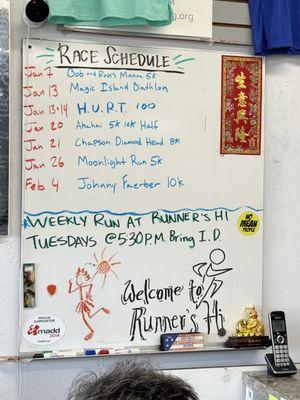 ng.org
RACE SCHEDULE
Jan 7 Bob and Ron's Manoa 5k
Jan 13 Magic Island Biathlon
Jan 13+14 H.U.R.T. 100
Jan 20 Akahai 5k 10k Half
Jan 21 Chapson Diamond Head 8k
Jan 26 Moonlight Run 5k
Feb 4 Johnny Faerber 10k
生意興隆
WEEKLY RUN AT RUNNER'S HI
TUESDAYS @ 5:30 P.M. Bring I.D.
NO
MEAN
PEOPLE
Welcome to
Runner's Hi
PROUD
SUPPORTER
madd
2014